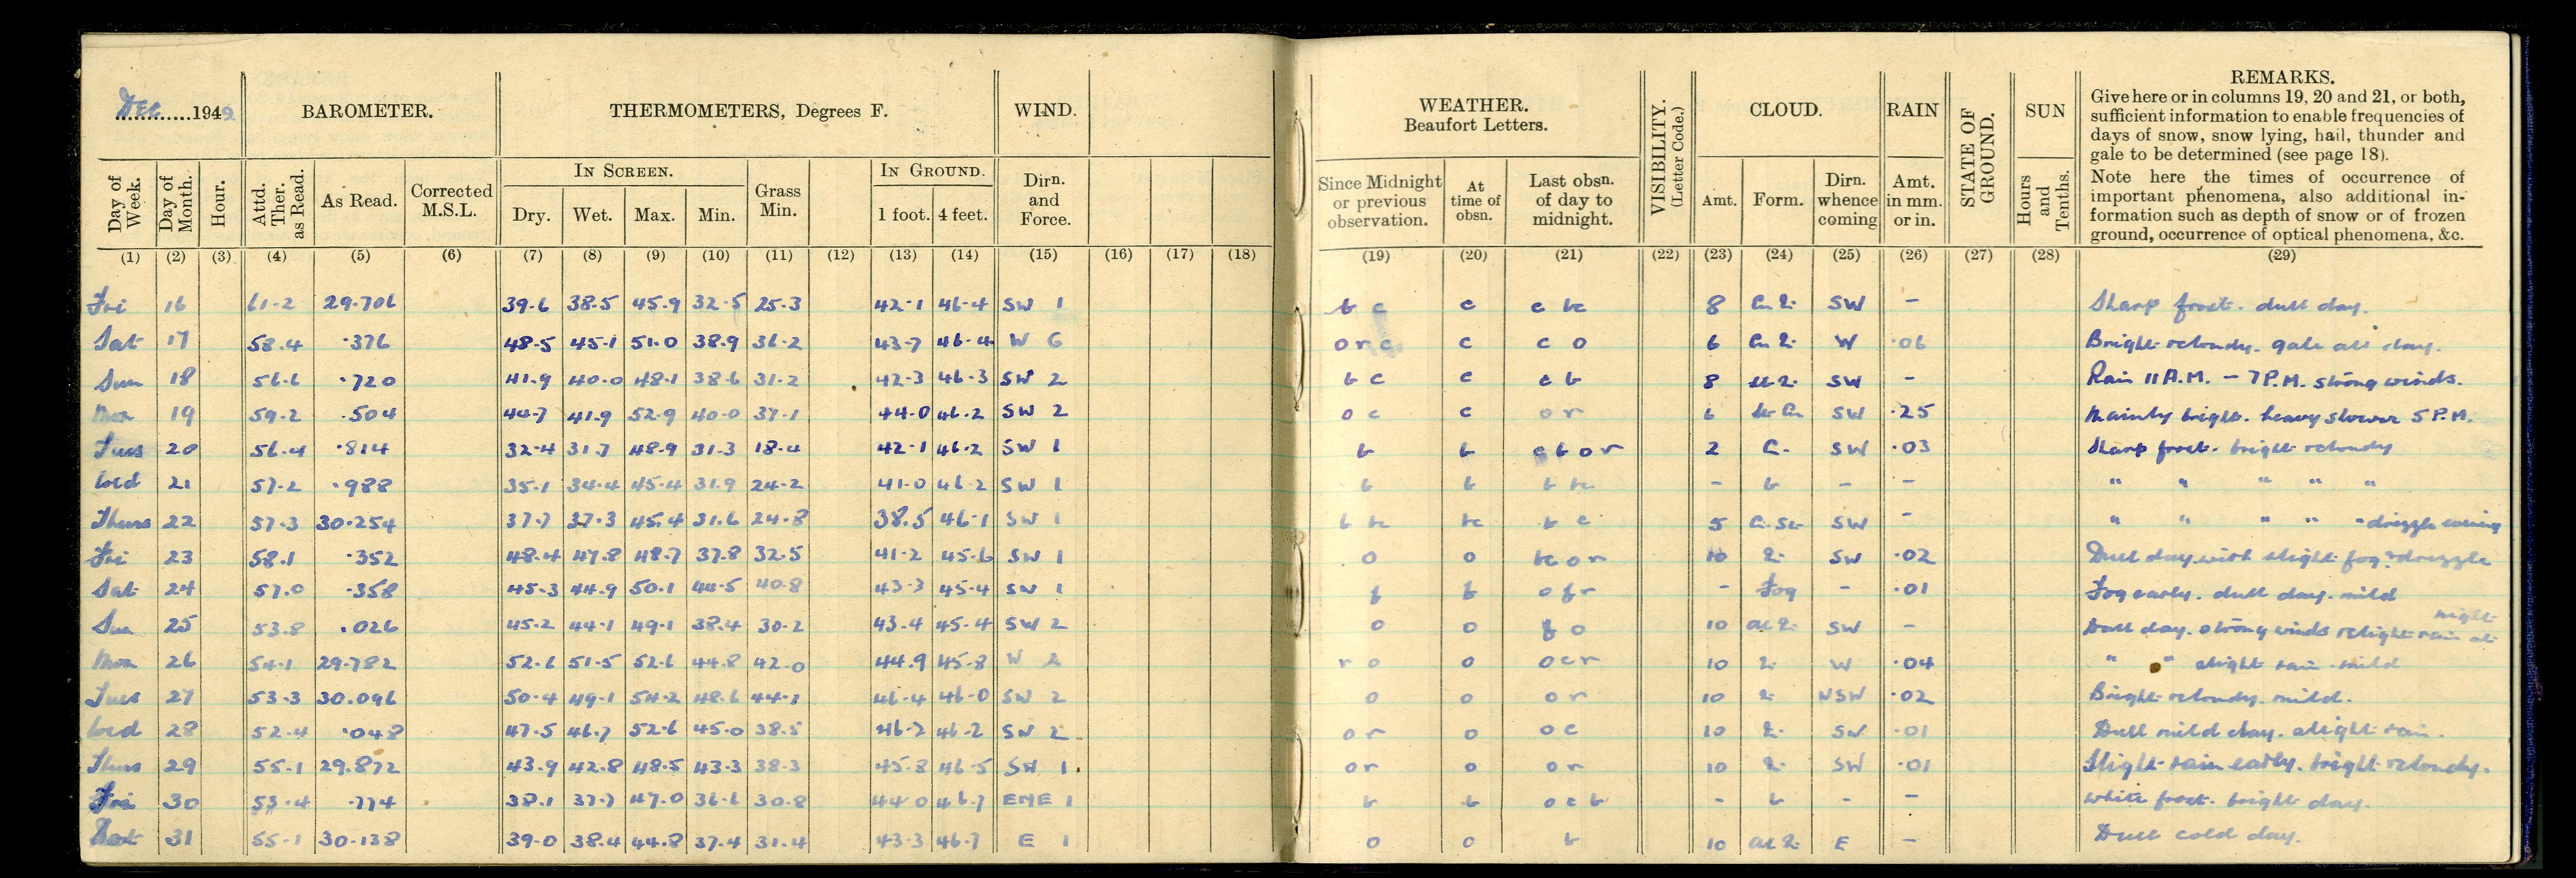 Dec 1949 BAROMETER. THERMOMETERS, Degrees F. WIND. WEATHER. Beaufort Letters. VISIBILITY. (Letter Code.) CLOUD. RAIN STATE OF GROUND. SUN REMARKS.
Give here or in columns 19, 20 and 21, or both,
sufficient information to enable frequencies of
days of snow, snow lying, hail, thunder and
gale to be determined (see page 18).
Note here the times of occurrence of
important phenomena, also additional in-
formation such as depth of snow or of frozen
ground, occurrence of optical phenomena, &c.
IN SCREEN. IN GROUND.
Day of Week. Day of Month. Hour. Attd. Ther. as Read. As Read. Corrected M.S.L. Dry. Wet. Max. Min. Grass Min. 1 foot. 4 feet. Dirn. and Force. Since Midnight or previous observation. At time of obsn. Last obsn. of day to midnight. Amt. Form. Dirn. whence coming Amt. in mm. or in. Hours and Tenths.
(1) (2) (3) (4) (5) (6) (7) (8) (9) (10) (11) (12) (13) (14) (15) (16) (17) (18) (19) (20) (21) (22) (23) (24) (25) (26) (27) (28) (29)
Fri 16 61.2 29.706 39.6 38.5 45.9 32.5 25.3 42.1 46.4 SW 1 b c c c bc 8 SW - Sharp frost. dull day.
Sat 17 58.4 .376 48.5 45.1 51.0 38.9 36.2 43.7 46.4 W 6 o r c c c o 6 W .06 Bright & cloudy. gale all day.
Sun 18 56.6 .720 41.9 40.0 48.1 38.6 31.2 42.3 46.3 SW 2 b c c c b 8 SW - Rain 11 A.M. - 7 P.M. strong winds.
Mon 19 59.2 .504 44.7 41.9 52.9 40.0 37.1 44.0 46.2 SW 2 o c c o r 6 SW .25 Mainly bright. heavy shower 5 P.M.
Tues 20 56.4 .814 32.4 31.7 48.9 31.3 18.4 42.1 46.2 SW 1 b b c b o r 2 C. SW .03 Sharp frost. bright & cloudy
Wed 21 57.2 .988 35.1 34.4 45.4 31.9 24.2 41.0 46.2 SW 1 b b b bc - b - - " " " " "
Thurs 22 57.3 30.254 37.7 37.3 45.4 31.6 24.8 38.5 46.1 SW 1 b bc bc b c 5 SW - " " " " " drizzle evening
Fri 23 58.1 .352 48.4 47.8 48.7 37.8 32.5 41.2 45.6 SW 1 o o bc o r 10 SW .02 Dull day with slight fog & drizzle
Sat 24 57.0 .358 45.3 44.9 50.1 44.5 40.8 43.3 45.4 SW 1 f f o f r - Fog - .01 Fog early. dull day. mild
Sun 25 53.8 .026 45.2 44.1 49.1 38.4 30.2 43.4 45.4 SW 2 o o f o 10 SW - Dull day. strong winds & slight rain at night
Mon 26 54.1 29.782 52.6 51.5 52.6 44.8 42.0 44.9 45.8 W 2 r o o o c r 10 W .04 " " slight rain. mild
Tues 27 53.3 30.096 50.4 49.1 54.2 48.6 44.1 46.4 46.0 SW 2 o o o r 10 WSW .02 Bright & cloudy. mild.
Wed 28 52.4 .048 47.5 46.7 52.6 45.0 38.5 46.2 46.2 SW 2 o r o o c 10 SW .01 Dull mild day. slight rain.
Thurs 29 55.1 29.872 43.9 42.8 48.5 43.3 38.3 45.8 46.5 SW 1 o r o o r 10 SW .01 Slight rain early. bright & cloudy.
Fri 30 53.4 .774 38.1 37.7 47.0 36.6 30.8 44.0 46.7 ENE 1 b b o c b - b - - White frost. bright day.
Sat 31 55.1 30.138 39.0 38.4 44.8 37.4 31.4 43.3 46.7 E 1 o o b 10 E - Dull cold day.